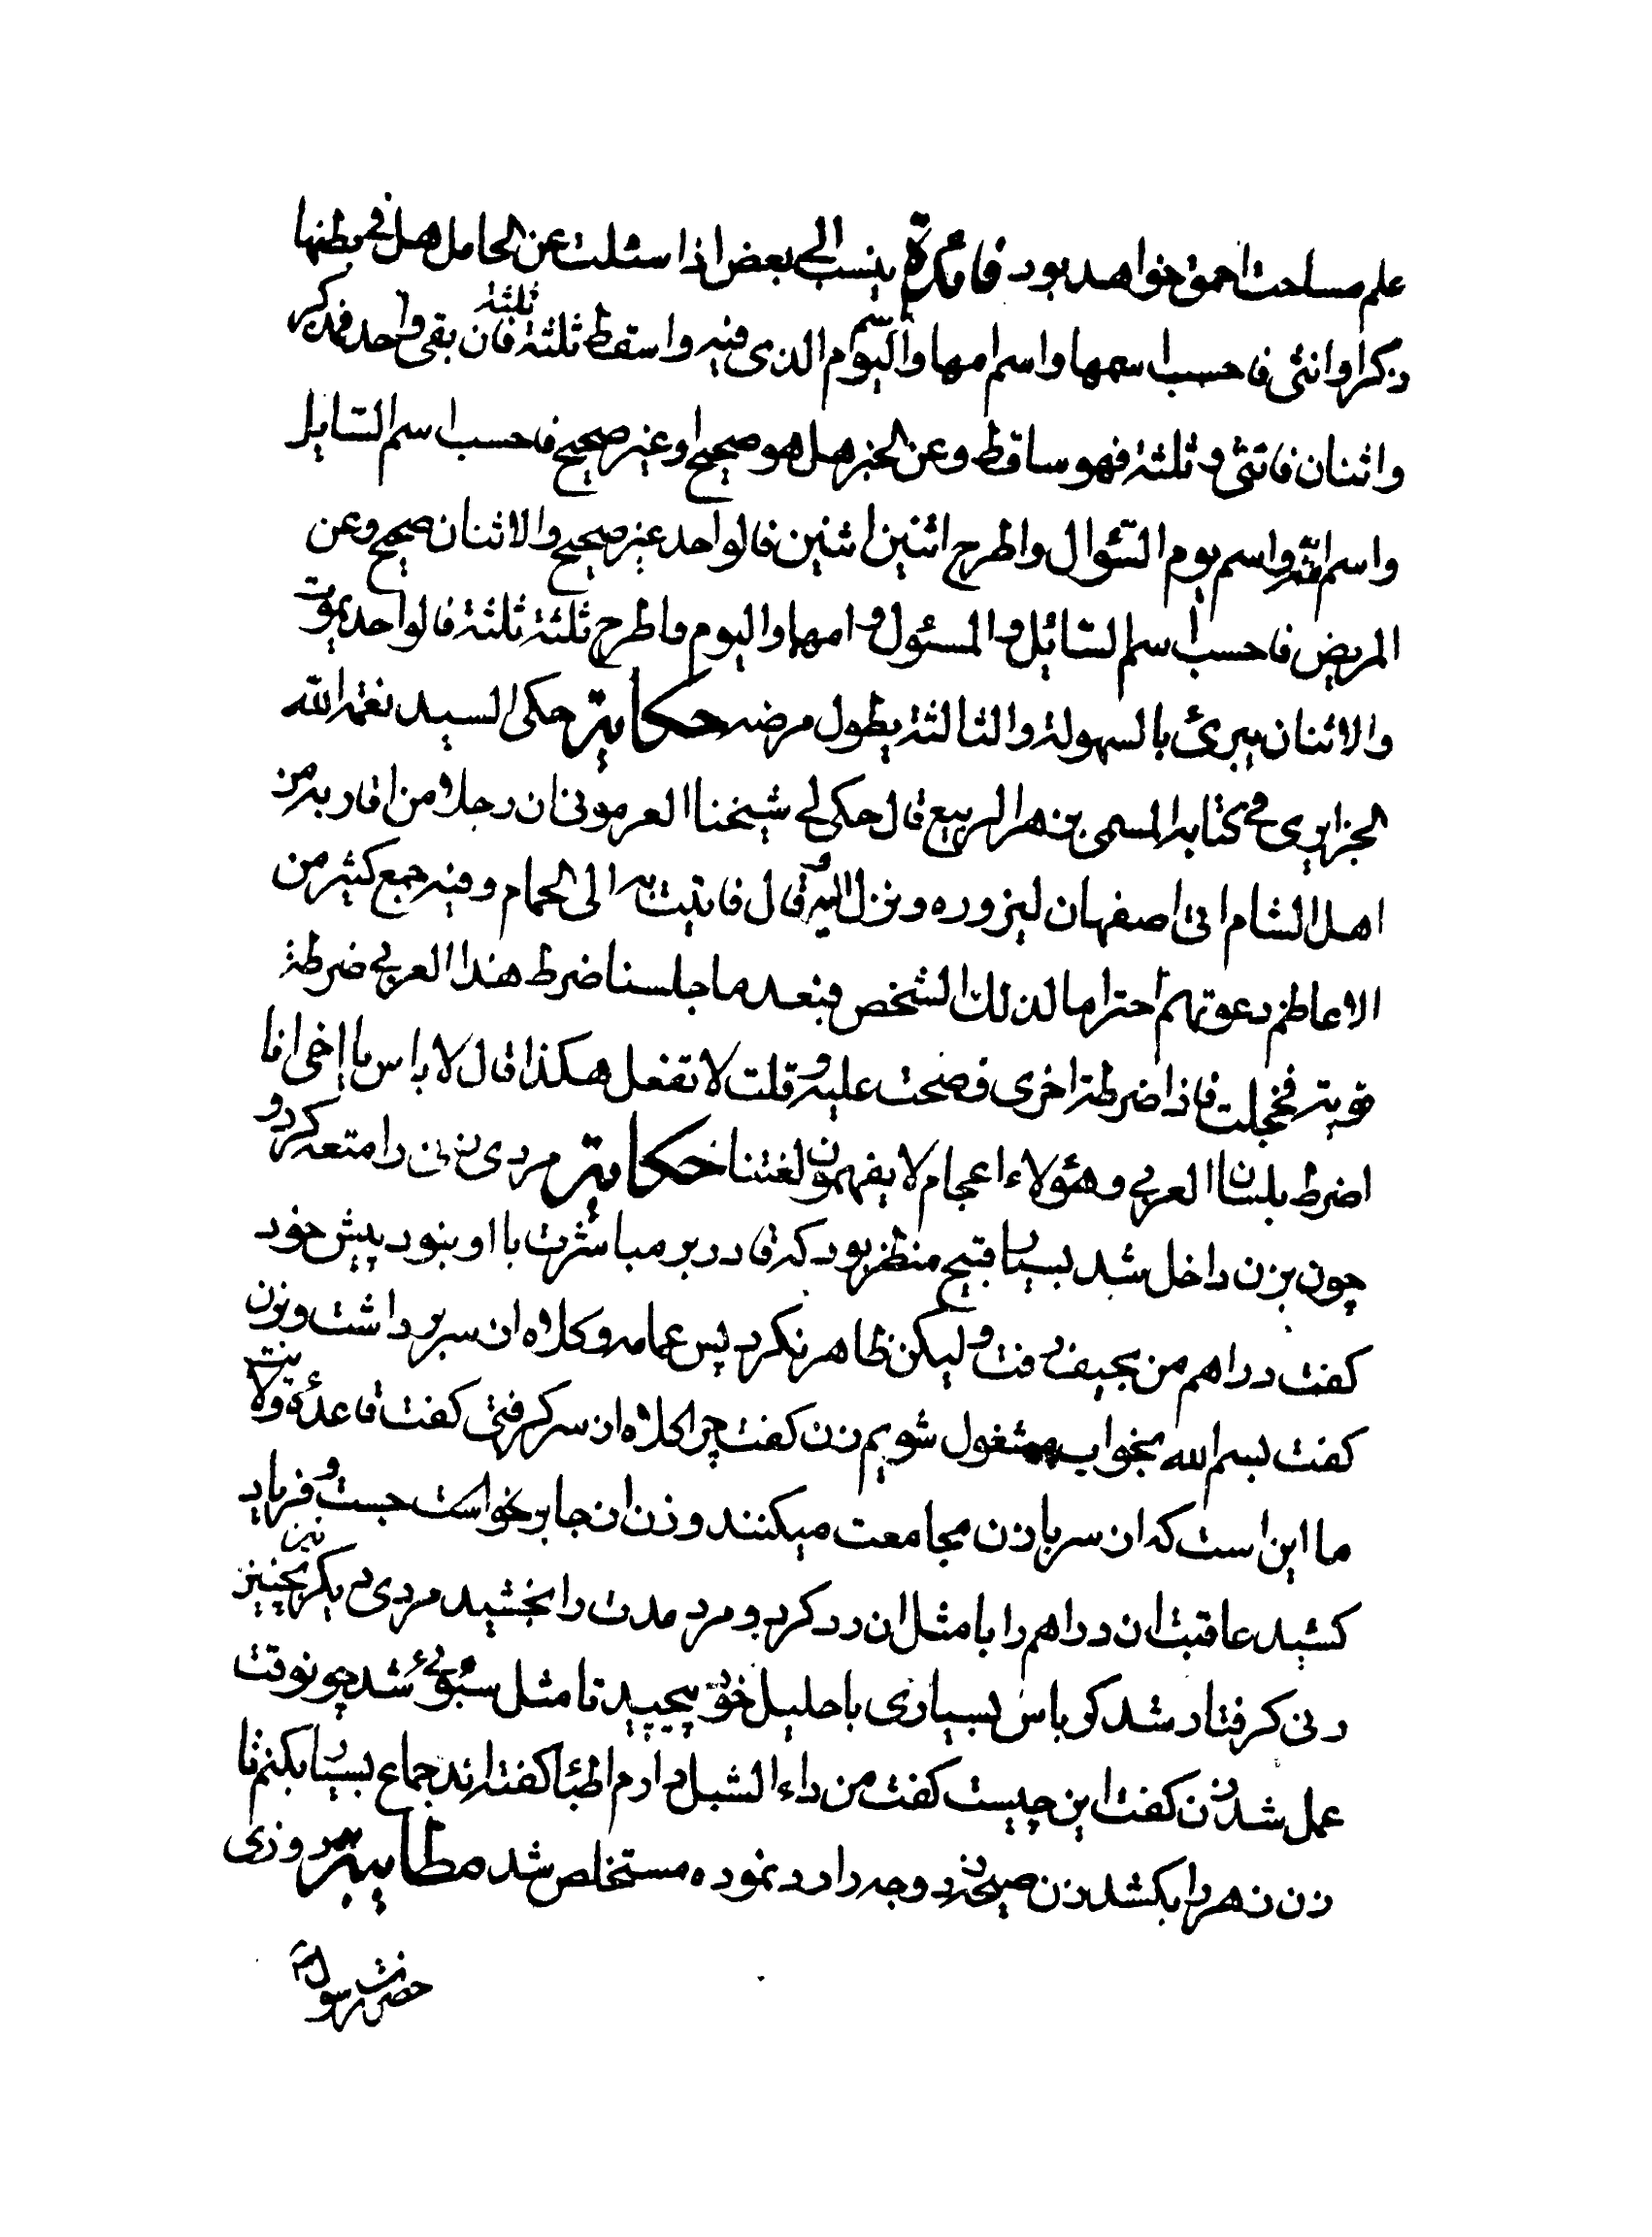 علم مساحت احمق خواهد بود فائدة ینسب الی بعض اذا سئلت عن الحامل هل فی بطنها
ذکر او انثی فاحسب اسمها و اسم امها و اسم الیوم الذی فیه و اسقط ثلثة ثلثة فان بقی واحد فذکر
و اثنان فانثی و ثلثة فهو ساقط و عن الخبر هل هو صحیح او غیر صحیح فاحسب اسم السایل
و اسم امه و اسم یوم السئوال و اطرح اثنین اثنین فالواحد غیر صحیح و الاثنان صحیح و عن
المریض فاحسب اسم السائل و المسئول و امهما و الیوم فاطرح ثلثة ثلثة فالواحد یموت
و الاثنان یبرئ بالسهولة و الثالثة یطول مرضه حکایة حکی السید نعمة الله
الجزایری فی کتابه المسمی بزهر الربیع قال حکی لی شیخنا العرمونی ان رجلا من اقاربه من
اهل الشام اتی اصفهان لیزوره و نزل الیه قال فاتیت به الی الحمام و فیه جمع کثیر من
الاعاظم دعوتهم احتراما لذلک الشخص فبعد ما جلسنا ضرط هذا العربی ضرطة
قویة فخجلت فاذا ضرطة اخری فصحت علیه و قلت لا تفعل هکذا قال لا باس یا اخی انا
اضرط بلسان العربی و هؤلاء اعجام لا یفهمون لغتنا حکایة مردی زنی را متعه کرد و
چون بزن داخل شد بسیار قبیح منظر بود که قادر بر مباشرت با او نبود پیش خود
کفت دراهم من بحیف رفت و لیکن ظاهر نکرد پس عمامه و کلاه از سر برداشت و بزن
کفت بسم الله بخواب مشغول شویم زن کفت چرا کلاه از سر کرفتی کفت قاعدۀ ولایت
ما این است که از سر با زن مجامعت میکنند و زن از جا برخواست جست و فریاد
کشید عاقبت ان دراهم را با مثل ان رد کرد و مرد مدت را بخشید مردی دیکر نیز بچنین
زنی کرفتار شد کرباس بسیاری باحلیل خود پیچید تا مثل سبوئی شد چونوقت
عمل شد زن کفت این چیست کفت من داء الشبل دارم اطبا کفته اند جماع بسیار بکنم تا
زن زهر را بکشد زن صیحه زد وجه را رد نموده مستخلص شد مطایبة روزی
حضرت رسول